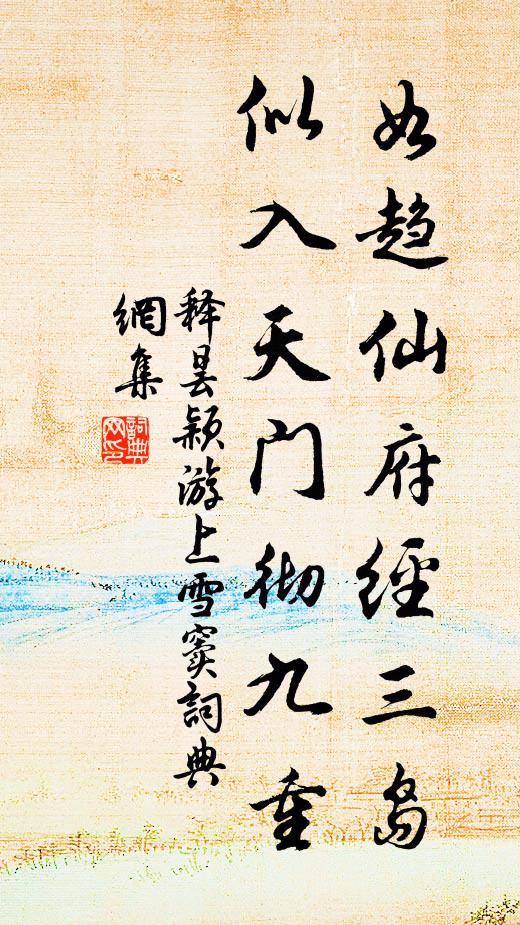 如趋仙府經三岛
似入天門彻九重
释昙颖游上雪窦詞典
網集
詞典
网印